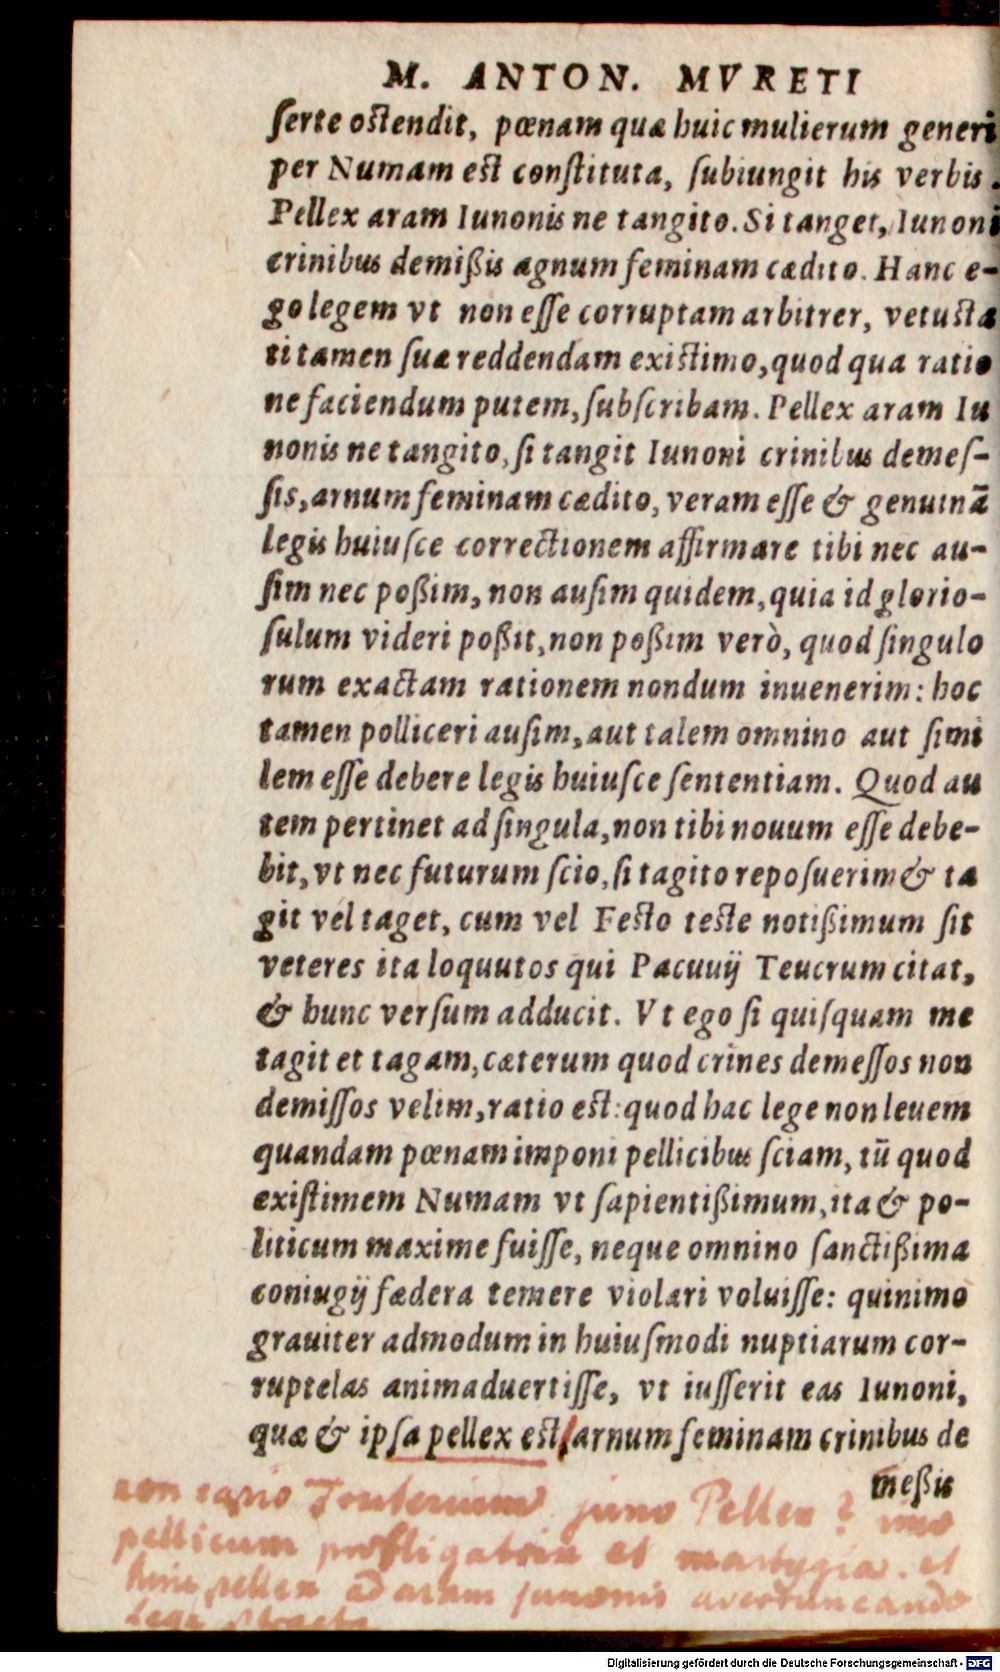 M. ANTON. MVRETI
ſerte oſtendit, pœnam quæ huic mulierum generi
per Numam eſt conſtituta, ſubiungit his verbis.
Pellex aram Iunonis ne tangito. Si tanget, Iunoni
crinibus demißis agnum feminam cædito. Hanc e-
go legem vt non eſſe corruptam arbitrer, vetuſta
ti tamen ſuæ reddendam exiſtimo, quod qua ratio
ne faciendum putem, ſubſcribam. Pellex aram Iu
nonis ne tangito, ſi tangit Iunoni crinibus demeſ-
ſis, arnum feminam cædito, veram eſſe & genuinā
legis huiuſce correctionem affirmare tibi nec au-
ſim nec poßim, non auſim quidem, quia id glorio-
ſulum videri poßit, non poßim verò, quod ſingulo
rum exactam rationem nondum inuenerim: hoc
tamen polliceri auſim, aut talem omnino aut ſimi
lem eſſe debere legis huiuſce ſententiam. Quod au
tem pertinet ad ſingula, non tibi nouum eſſe debe-
bit, vt nec futurum ſcio, ſi tagito repoſuerim & ta
git vel taget, cum vel Feſto teſte notißimum ſit
veteres ita loquutos qui Pacuuij Teucrum citat,
& hunc verſum adducit. Vt ego ſi quiſquam me
tagit et tagam, cæterum quod crines demeſſos non
demiſſos velim, ratio eſt: quod hac lege non leuem
quandam pœnam imponi pellicibus ſciam, tū quod
exiſtimem Numam vt ſapientißimum, ita & po-
liticum maxime fuiſſe, neque omnino ſanctißima
coniugij fædera temere violari voluiſſe: quinimo
grauiter admodum in huiuſmodi nuptiarum cor-
ruptelas animaduertiſſe, vt iuſſerit eas Iunoni,
quæ & ipſa pellex eſt, arnum feminam crinibus de
meßis
non capio juno Pellex? imo
pellicum profligatrix et mastygia. et
hinc pellex ad aram junonis
Lege
Digitalisierung gefördert durch die Deutsche Forschungsgemeinschaft - DFG